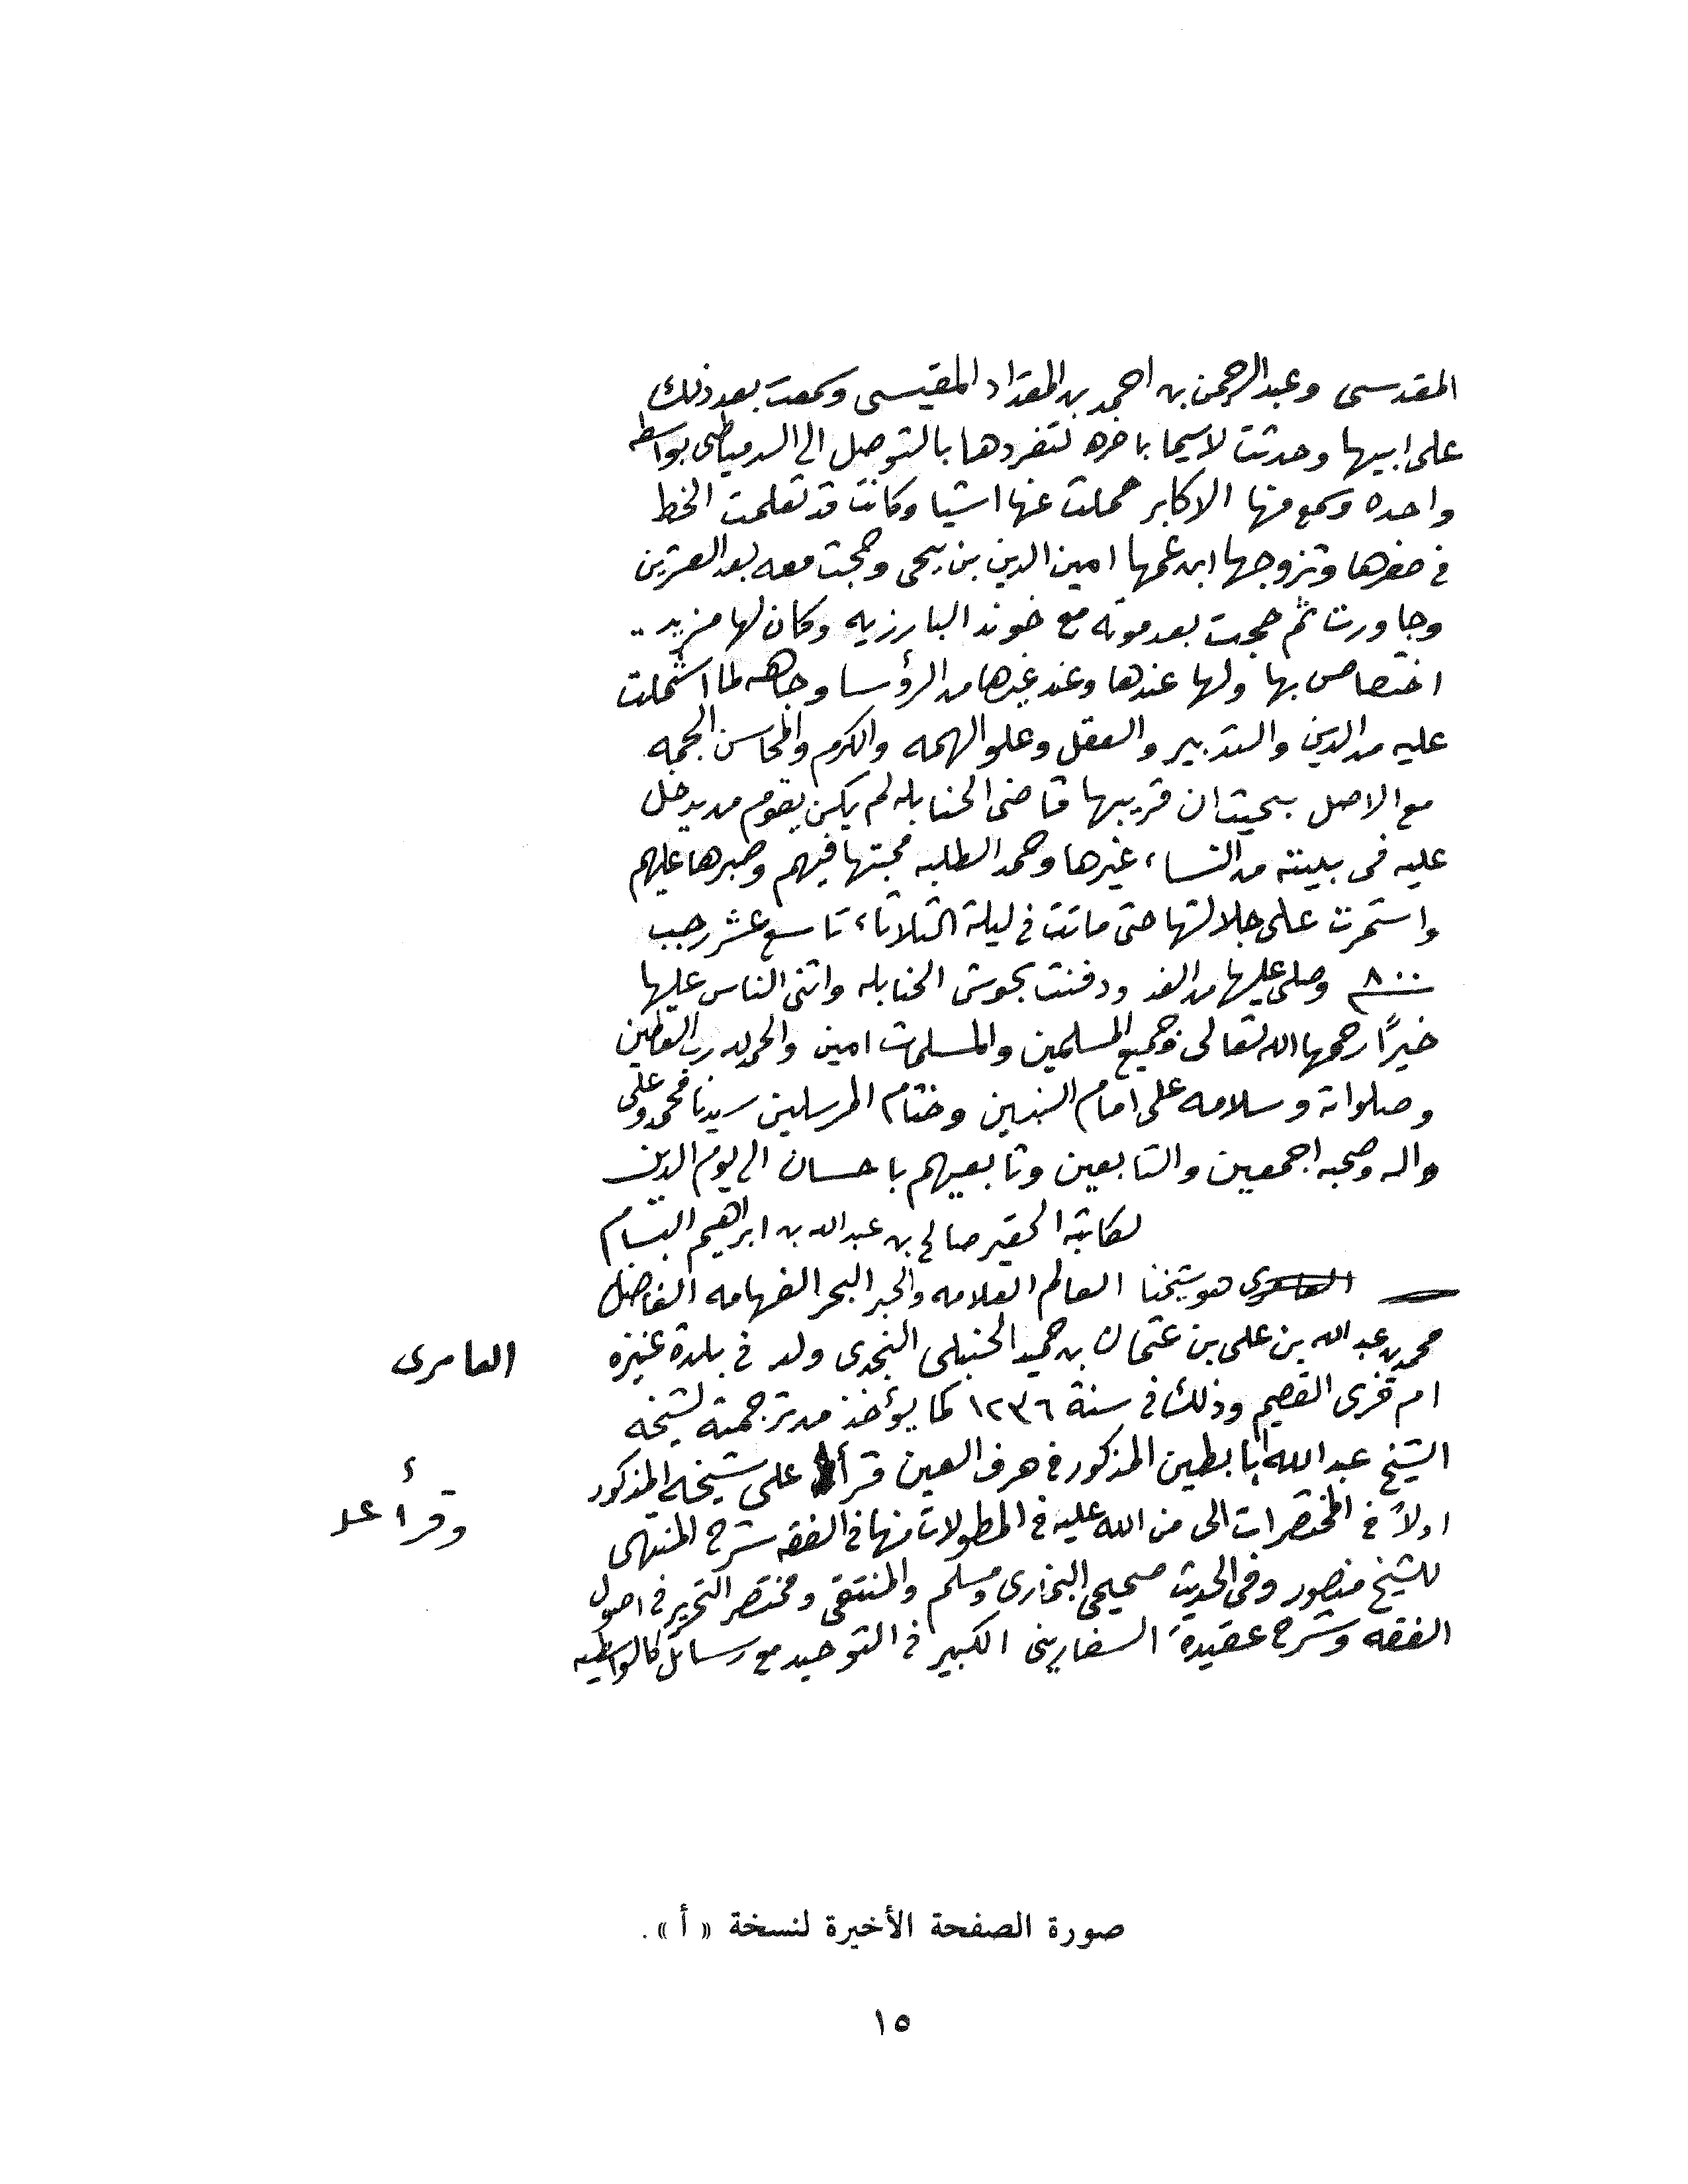 المقدسى وعبدالرحمن بن احمد بن المقداد القيسى وسمعت بعد ذلك
على ابيها وحدثت لاسيما باخره لتفردها بالتوصل الى الدمياطى بواسطه
واحده وسمع منها الاكابر حملت عنها اشيا وكانت قد تعلمت الخط
فى صغرها وتزوجها ابن عمها امين الدين بن يحى وحجت معه بعد العشرين
وجاورت ثم حجت بعد موته مع خوند البارزيه وكان لها مزيد
اختصاص بها ولها عندها وعند غيرها من الرؤسا وجاهه لما اشتملت
عليه من الدين والتدبير والعقل وعلو الهمه والكرم والمحاسن الجمه
مع الاصل بحيث ان قريبها قاضى الحنابله لم يكن يقوم من يدخل
عليه فى بيته من النساء غيرها وحمد الطلبه محبتها فيهم وصبرها عليهم
واستمرت على جلالتها حتى ماتت فى ليلة الثلاثاء تاسع عشر رجب
٨٠٠ وصلى عليها من الغد ودفنت بحوش الحنابله واثنى الناس عليها
خيرًا رحمها الله تعالى وجميع المسلمين والمسلمات امين والحمد لله رب العالمين
وصلواته وسلامه على امام النبيين وختام المرسلين سيدنا محمد وعلى
واله وصحبه اجمعين والتابعين وتابعيهم باحسان الى يوم الدين
لكاتبه الحقير صالح بن عبدالله بن ابراهيم البسام
العامرى هو شيخنا العالم العلامه والحبر البحر الفهامه الفاضل
محمد بن عبدالله بن على بن عثمان بن حميد الحنبلى النجدى ولد فى بلدة عنيزه
العامرى
ام قرى القصيم وذلك فى سنة ١٢٣٦ كما يؤخذ من ترجمة لشيخه
الشيخ عبدالله ابا بطين المذكور فى حرف العين قرأ على شيخه المذكور
وقرأ على
اولاً فى المختصرات الى من الله عليه فى المطولات منها فى الفقه شرح المنتهى
للشيخ منصور وفى الحديث صحيحى البخارى ومسلم والمنتقى ومختصر التحرير فى اصول
الفقه وشرح عقيدة السفارينى الكبير فى التوحيد مع رسائل كالواسطيه
صورة الصفحة الأخيرة لنسخة « أ » .
١٥